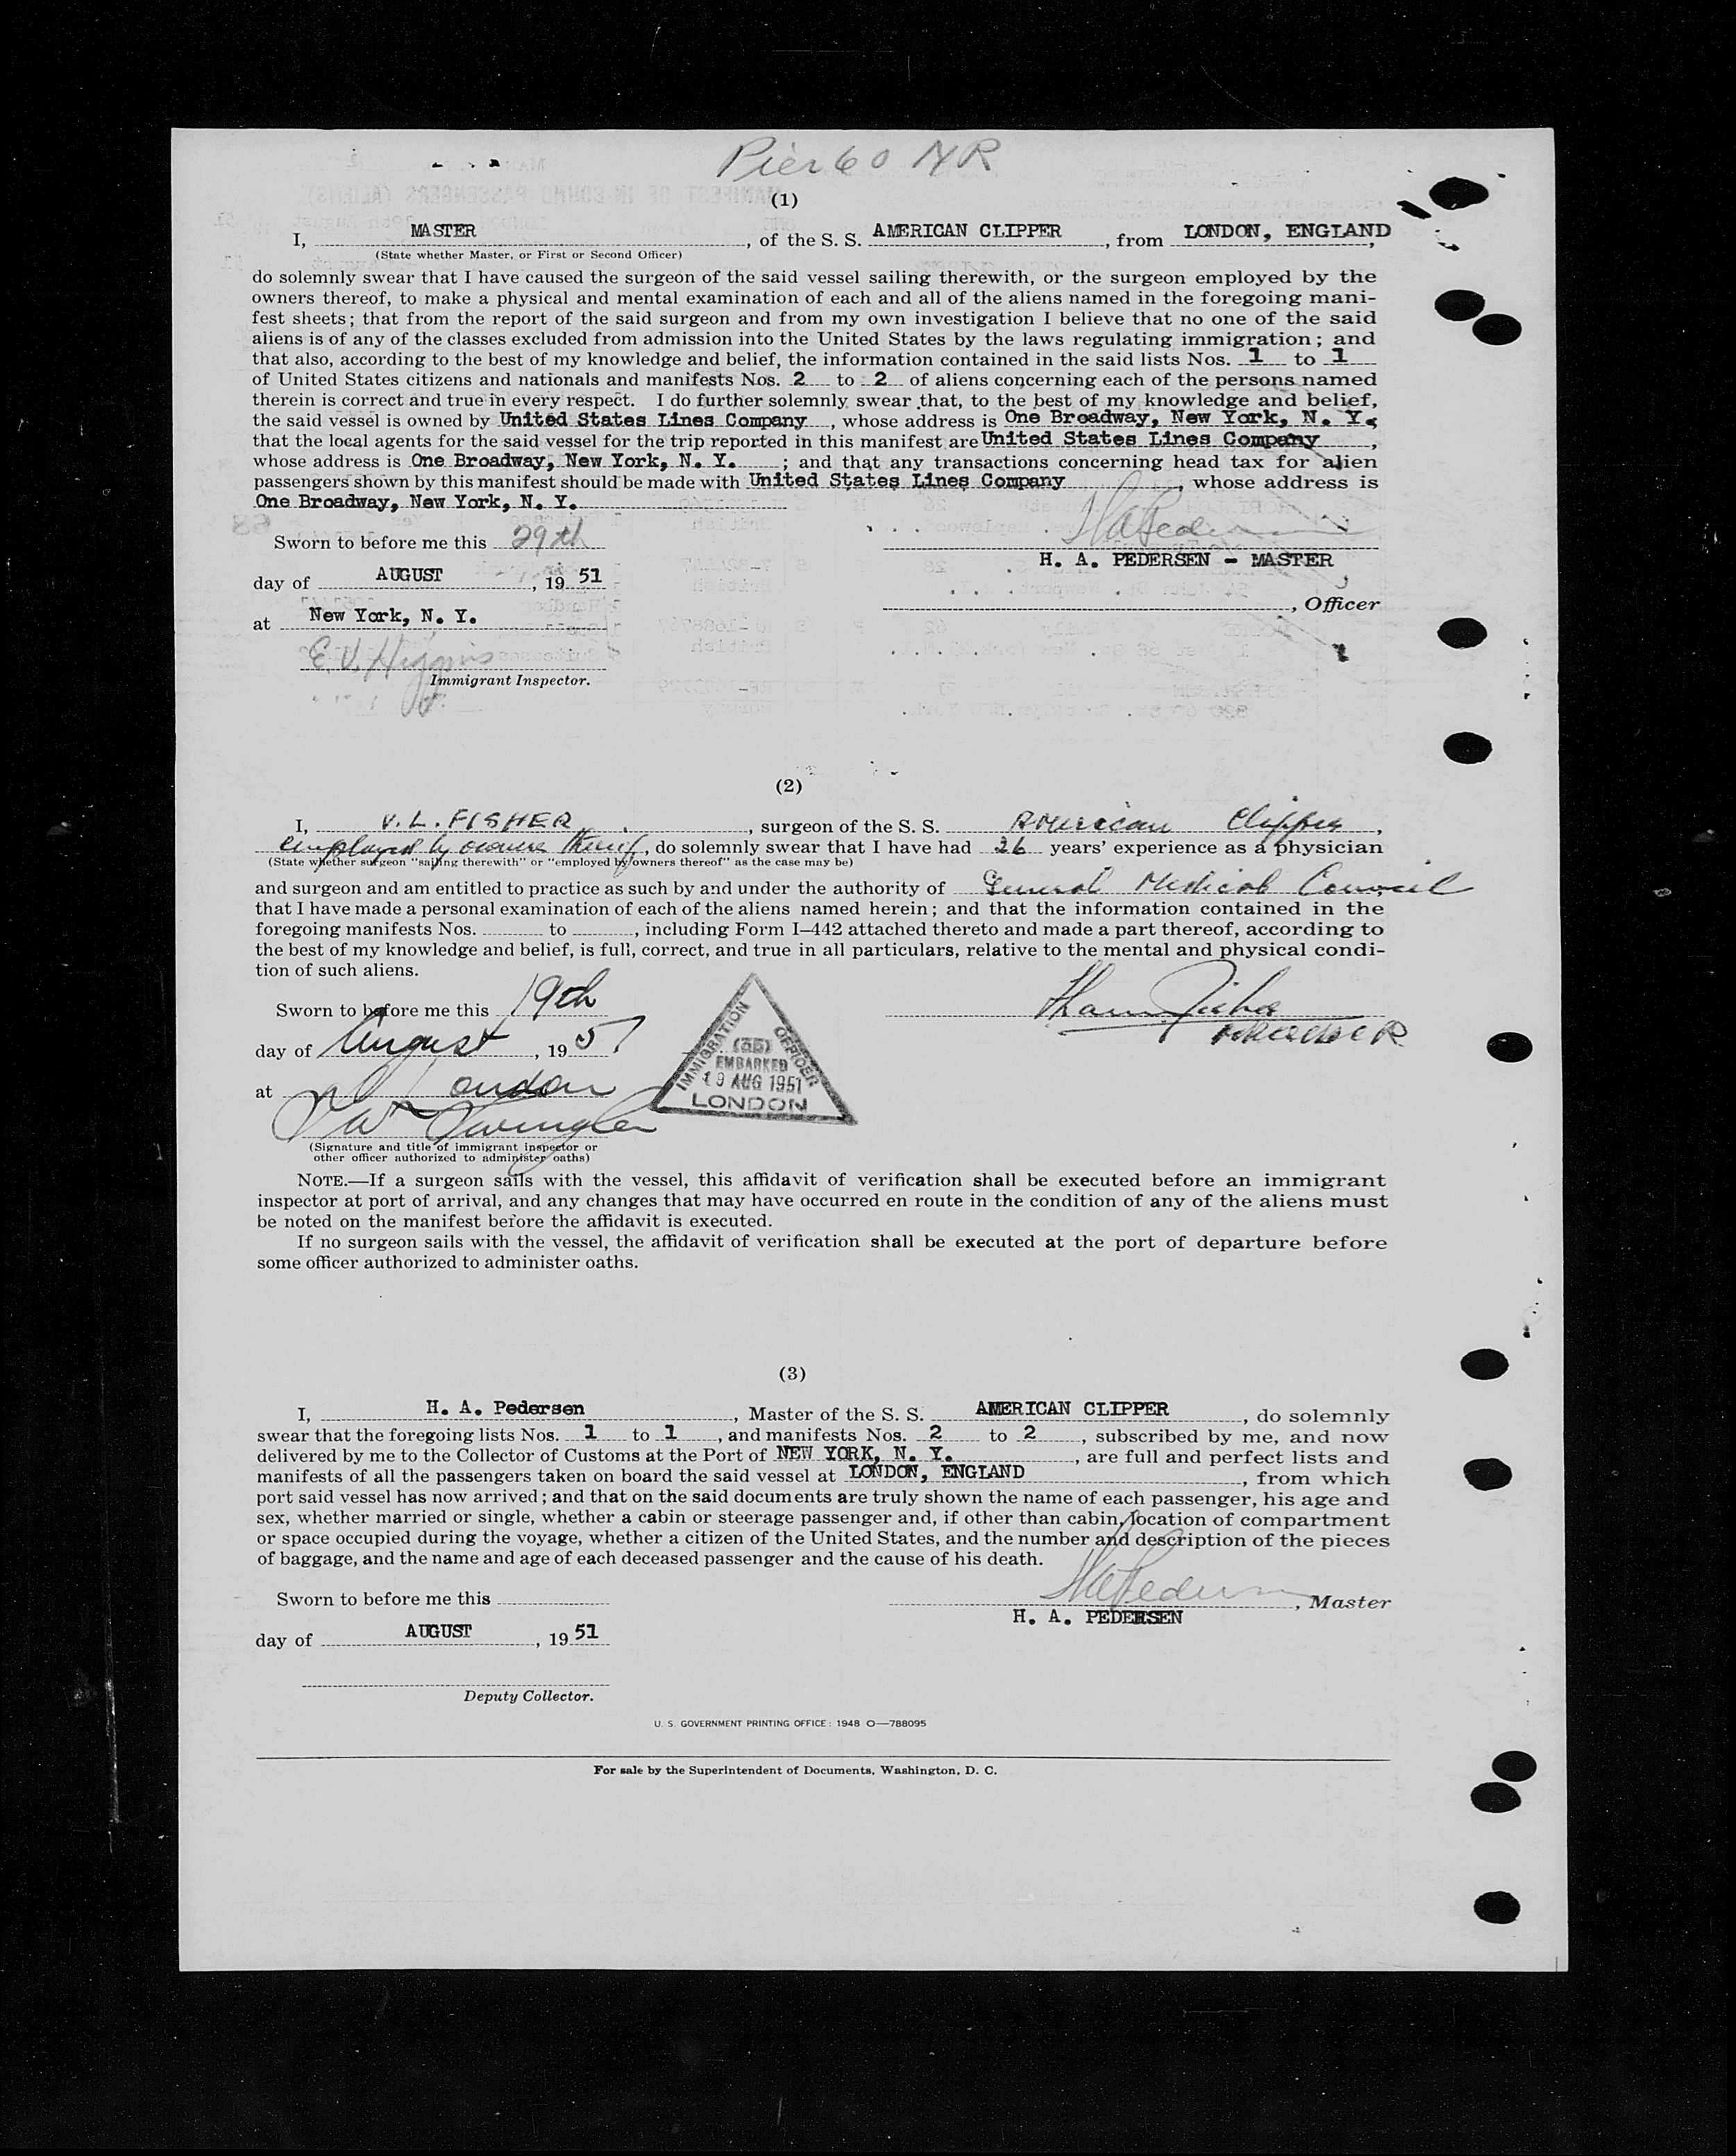 Pier 60 NR
(1)
I, MASTER, of the S. S. AMERICAN CLIPPER, from LONDON, ENGLAND,
(State whether Master, or First or Second Officer)
do solemnly swear that I have caused the surgeon of the said vessel sailing therewith, or the surgeon employed by the
owners thereof, to make a physical and mental examination of each and all of the aliens named in the foregoing mani-
fest sheets; that from the report of the said surgeon and from my own investigation I believe that no one of the said
aliens is of any of the classes excluded from admission into the United States by the laws regulating immigration; and
that also, according to the best of my knowledge and belief, the information contained in the said lists Nos. 1 to 1
of United States citizens and nationals and manifests Nos. 2 to 2 of aliens concerning each of the persons named
therein is correct and true in every respect. I do further solemnly swear that, to the best of my knowledge and belief,
the said vessel is owned by United States Lines Company, whose address is One Broadway, New York, N. Y.,
that the local agents for the said vessel for the trip reported in this manifest are United States Lines Company,
whose address is One Broadway, New York, N. Y. ; and that any transactions concerning head tax for alien
passengers shown by this manifest should be made with United States Lines Company, whose address is
One Broadway, New York, N. Y.
Sworn to before me this 29th
HAPedersen
H. A. PEDERSEN - MASTER
day of AUGUST, 19 51
, Officer
at New York, N. Y.
E. V. Higgins
Immigrant Inspector.
(2)
I, V. L. FISHER, surgeon of the S. S. American Clipper,
employed by owners thereof, do solemnly swear that I have had 26 years' experience as a physician
(State whether surgeon "sailing therewith" or "employed by owners thereof" as the case may be)
and surgeon and am entitled to practice as such by and under the authority of General Medical Council
that I have made a personal examination of each of the aliens named herein; and that the information contained in the
foregoing manifests Nos. to , including Form I-442 attached thereto and made a part thereof, according to
the best of my knowledge and belief, is full, correct, and true in all particulars, relative to the mental and physical condi-
tion of such aliens.
Sworn to before me this 19th
Fisher
day of August, 1951
IMMIGRATION OFFICER
(35)
EMBARKED
19 AUG 1951
LONDON
at London
(Signature and title of immigrant inspector or
other officer authorized to administer oaths)
NOTE.—If a surgeon sails with the vessel, this affidavit of verification shall be executed before an immigrant
inspector at port of arrival, and any changes that may have occurred en route in the condition of any of the aliens must
be noted on the manifest before the affidavit is executed.
If no surgeon sails with the vessel, the affidavit of verification shall be executed at the port of departure before
some officer authorized to administer oaths.
(3)
I, H. A. Pedersen, Master of the S. S. AMERICAN CLIPPER, do solemnly
swear that the foregoing lists Nos. 1 to 1, and manifests Nos. 2 to 2, subscribed by me, and now
delivered by me to the Collector of Customs at the Port of NEW YORK, N. Y., are full and perfect lists and
manifests of all the passengers taken on board the said vessel at LONDON, ENGLAND, from which
port said vessel has now arrived; and that on the said documents are truly shown the name of each passenger, his age and
sex, whether married or single, whether a cabin or steerage passenger and, if other than cabin, location of compartment
or space occupied during the voyage, whether a citizen of the United States, and the number and description of the pieces
of baggage, and the name and age of each deceased passenger and the cause of his death.
Sworn to before me this
HAPedersen, Master
H. A. PEDERSEN
day of AUGUST, 19 51
Deputy Collector.
U. S. GOVERNMENT PRINTING OFFICE: 1948 O—788095
For sale by the Superintendent of Documents, Washington, D. C.